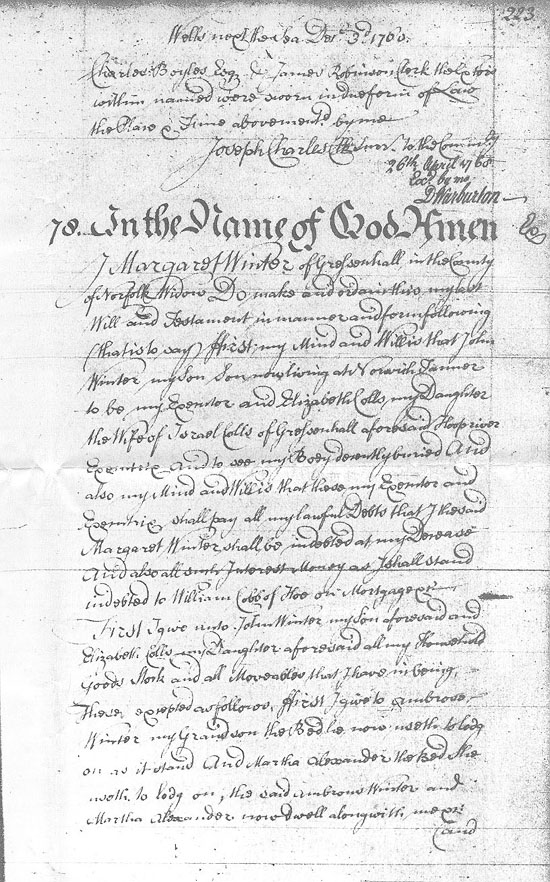 223
Wells next the Sea Decr. 3d. 1760.
Charles Boyles Esqr. & James Robinson Clerk the Exors
within named were sworn in due form of Law
the Place & Time abovementd. by me
Joseph Charles Surr.
26th April 1760
by me
D Warburton
78. In the Name of God Amen
I Margaret Winter of Gressenhall in the County
of Norfolk Widow Do make and ordain this my last
Will and Testament in manner and form following
(that is to say) ffirst my Mind and Will is that John
Winter my Son now living at Norwich Tanner
to be my Exentor and Elizabeth Colls my Daughter
the Wife of Israel Colls of Gressenhall aforesaid
Exentrix And to see my Body decently buried And
also my Mind and Will is that these my Exentor and
Exentrix shall pay all my lawful Debts that I the said
Margaret Winter shall be indebted at my Decease
And also all such Interest Money as I shall stand
indebted to William Cobb of Hoe on Mortgage
First I give unto John Winter my Son aforesaid and
Elizabeth Colls my Daughter aforesaid all my Household
Goods Stock and all Moveables that I have in being,
These excepted as follows, ffirst I give to Ambrose
Winter my Grandson the Bed he now useth to lodg
on as it stand And Martha Alexander the Bed She
useth to lodg on, the said Ambrose Winter and
Martha Alexander now dwell along with me
And